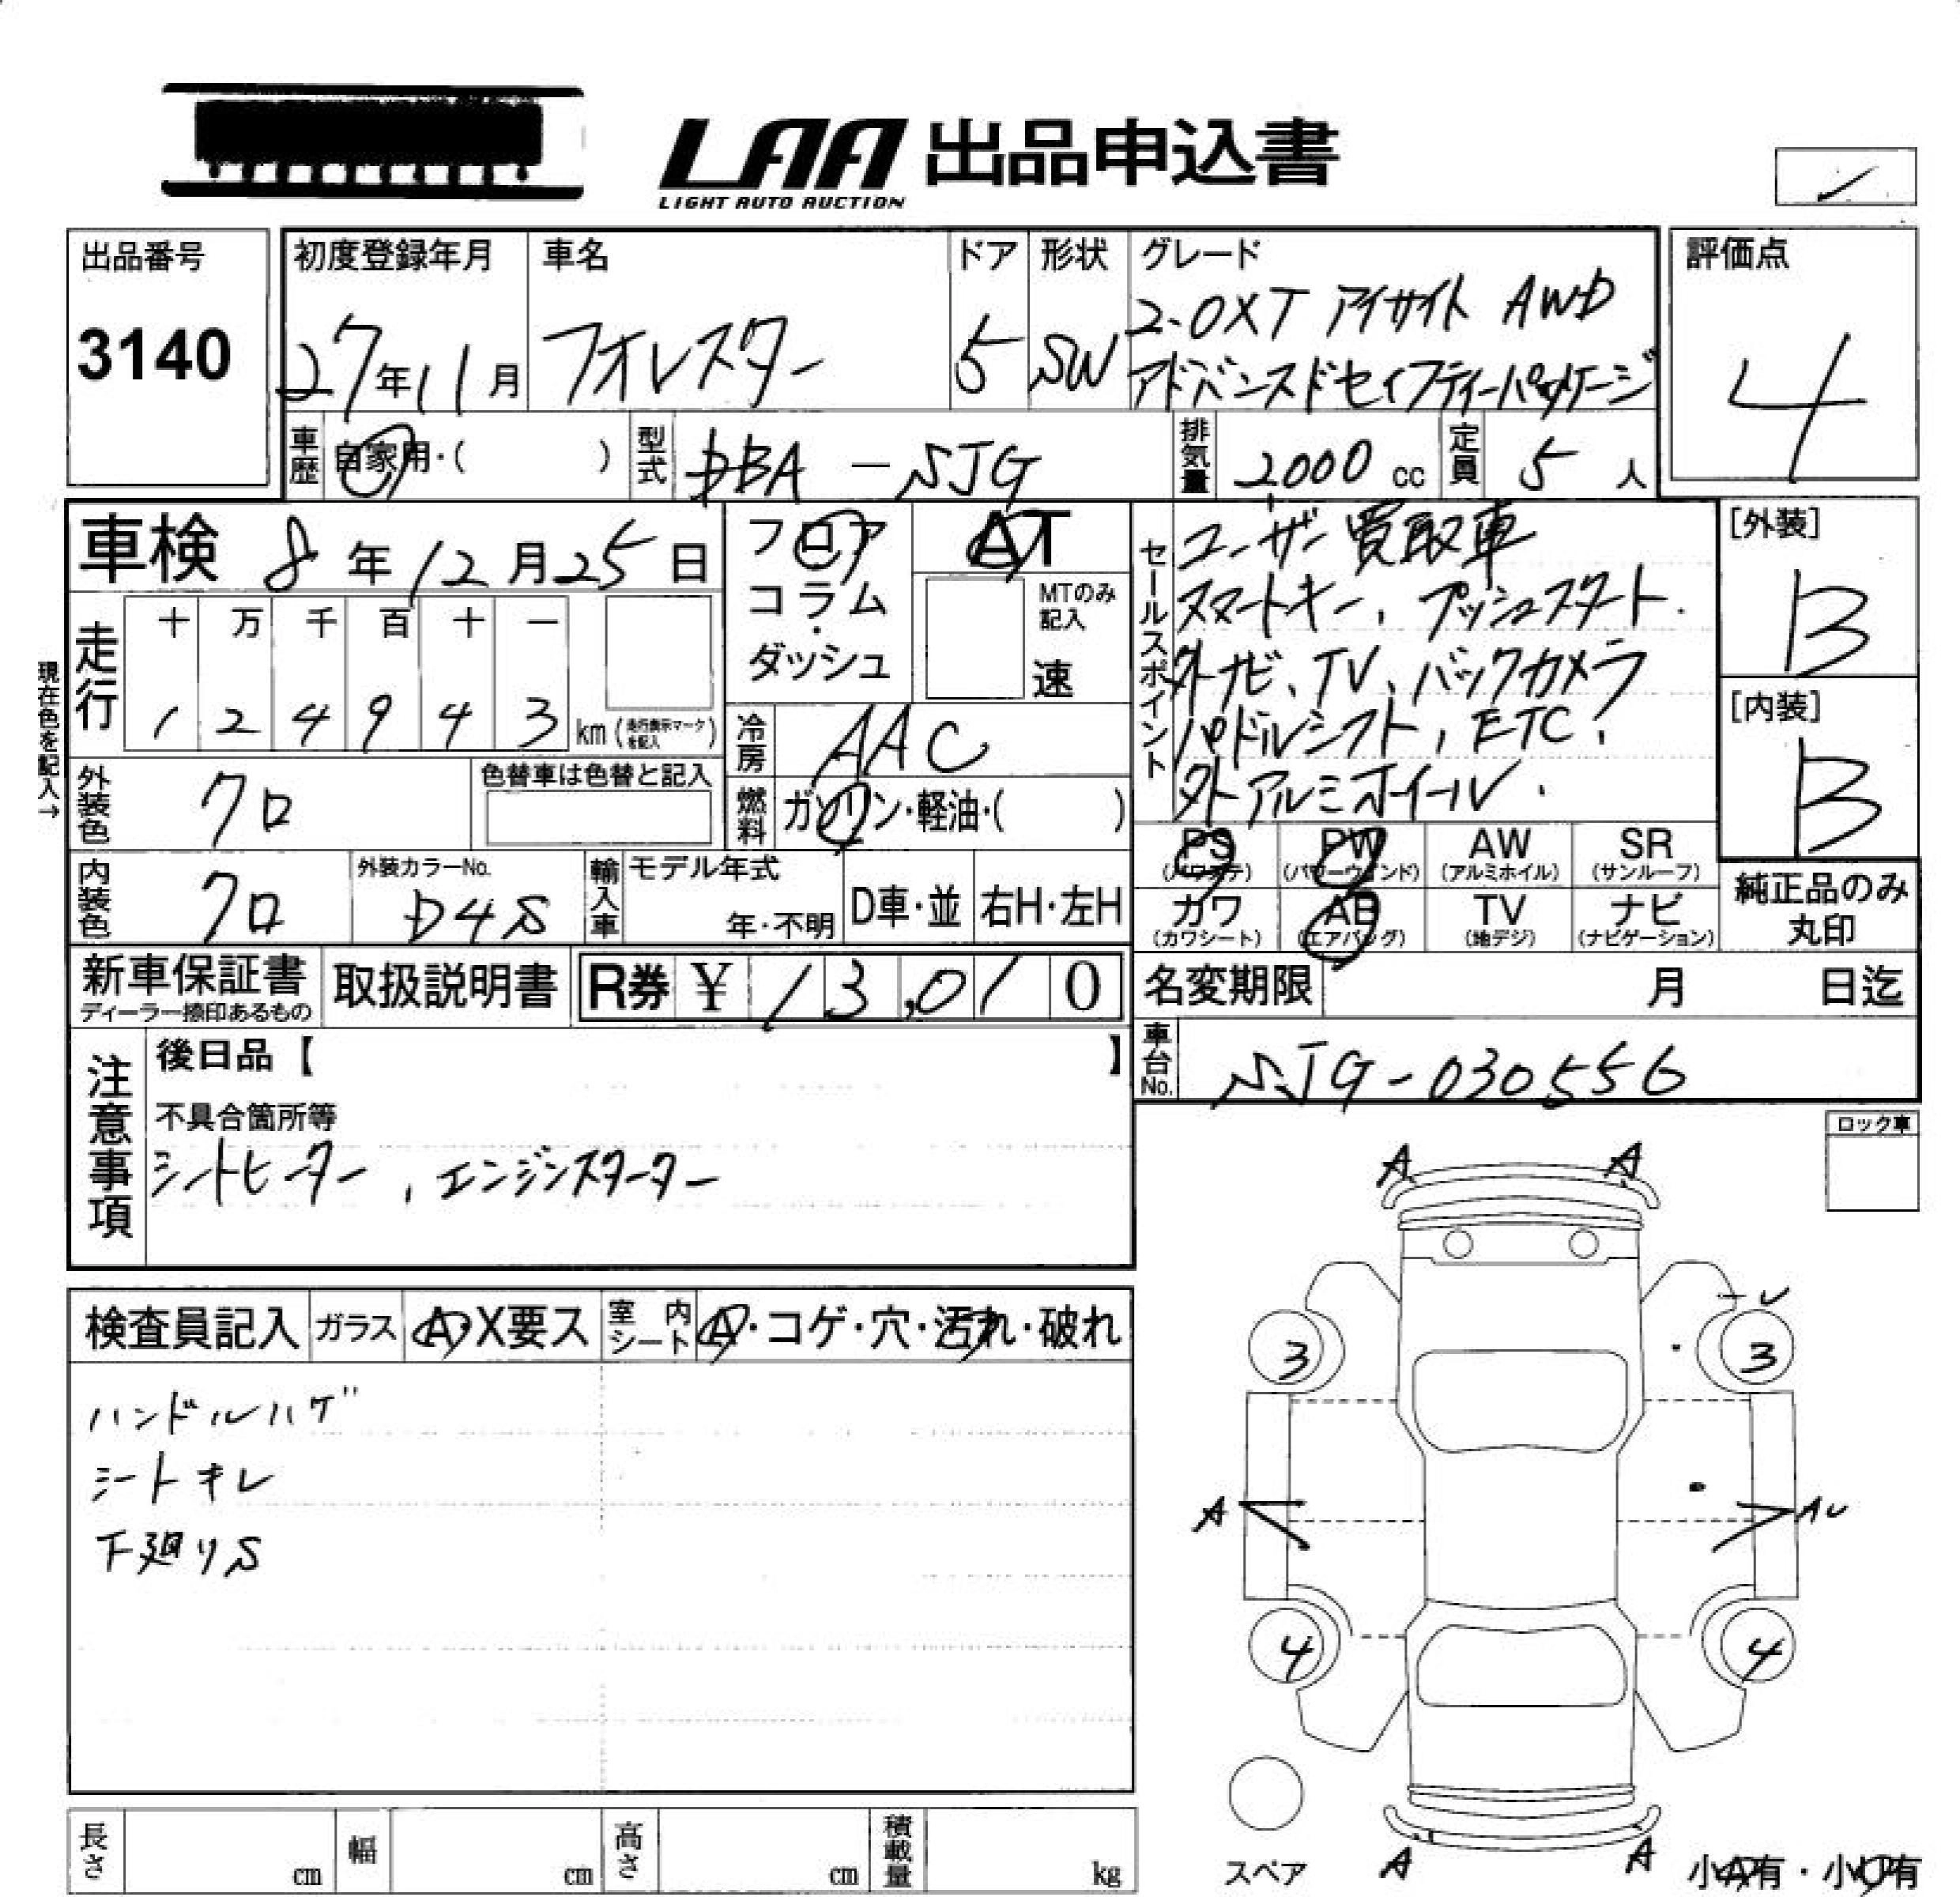 LAA 出品申込書
LIGHT AUTO AUCTION
出品番号
3140
初度登録年月
27年11月
車名
フォレスター
ドア
5
形状
SW
グレード
2.0XT アイサイト AWD
アドバンスドセイフティーパッケージ
評価点
4
車歴 自家用・( )
型式 DBA-SJG
排気量 2000 cc
定員 5 人
車検 8年12月25日
走行
十 万 千 百 十 一
1 2 4 9 4 3 km(走行表示マークを記入)
現在色を記入→
外装色 クロ
色替車は色替と記入
内装色 クロ
外装カラーNo.
D4S
フロア
コラム
・
ダッシュ
AT
MTのみ記入
速
冷房 AAC
燃料 ガソリン・軽油・( )
輸入車
モデル年式
年・不明
D車・並
右H・左H
セールスポイント
ユーザー買取車
スマートキー, プッシュスタート.
外ナビ、TV、バックカメラ
パドルシフト, ETC,
外アルミホイール.
[外装]
B
[内装]
B
PS
(パワステ)
PW
(パワーウインド)
AW
(アルミホイル)
SR
(サンルーフ)
カワ
(カワシート)
AB
(エアバッグ)
TV
(地デジ)
ナビ
(ナビゲーション)
純正品のみ
丸印
新車保証書
ディーラー捺印あるもの
取扱説明書
R券 ¥ 13,010
名変期限 月 日迄
車台No. SJG-030556
注意事項
後日品【 】
不具合箇所等
シートヒーター, エンジンスターター
ロック車
検査員記入
ガラス A・X要ス
室内シート A・コゲ・穴・汚れ・破れ
ハンドルハゲ
シートキレ
下廻りS
A
A
-U
3
3
A
AU
4
4
A
A
スペア
小A有・小U有
長さ cm
幅 cm
高さ cm
積載量 kg